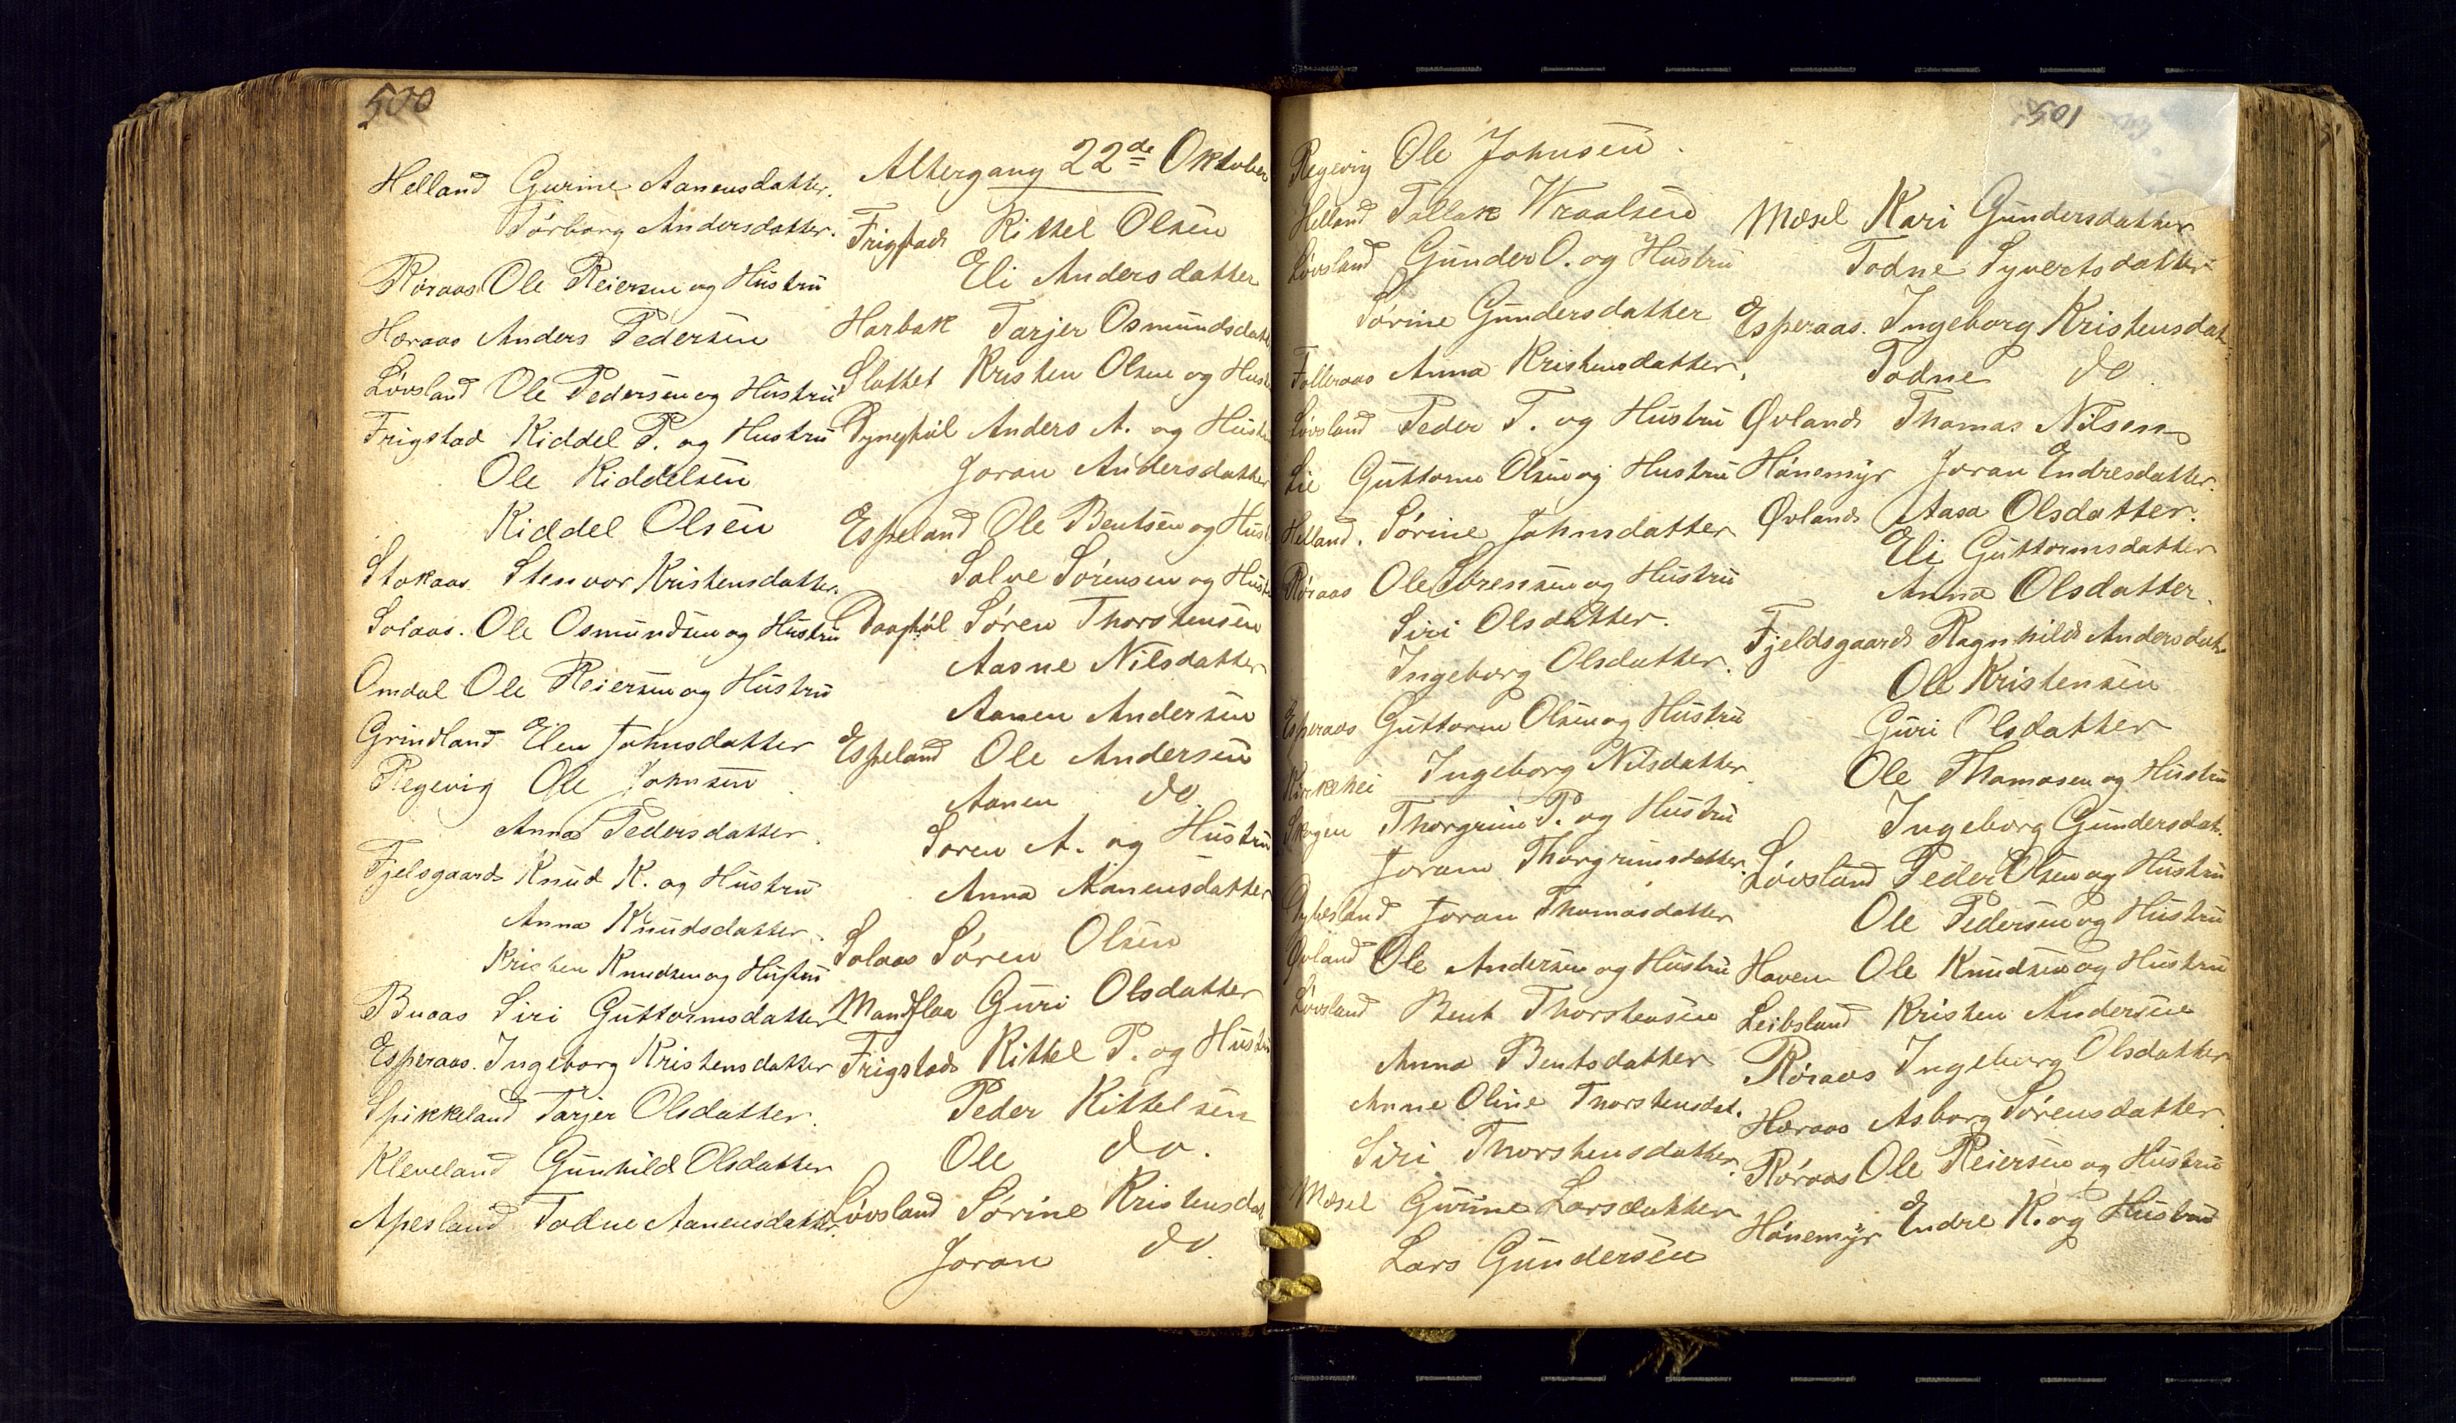 500
Helland Gurine Aanensdatter.
Tørborg Andersdatter.
Røraas Ole Reiersen og Hustru
Hæraas Anders Pedersen
Løvsland Ole Pedersen og Hustru
Frigstad Kiddel P. og Hustru
Ole Kiddelsen
Kiddel Olsen
Stokaas Stenvor Kristensdatter.
Solaas. Ole Osmundsen og Hustru
Omdal Ole Reiersen og Hustru
Grindland Elen Johnsdatter
Regevig Ole Johnsen
Anna Pedersdatter.
Fjelsgaard Knud K. og Hustru
Anna Knudsdatter.
Kristen Knudsen og Hustru
Buaas Siri Guttormsdatter
Esperaas. Ingeborg Kristensdatter
Spikkeland Tarjer Olsdatter.
Kleveland Gunhild Olsdatter
Apesland Todne Aanensdatter.
Altergang 22de Oktober
Frigstad Kittel Olsen
Eli Andersdatter
Harbak Tarjer Osmundsdatt
Slottet Kristen Olsen og Hust
Anders A. og Hustr
Joran Andersdatter
Espeland Ole Bentsen og Hust
Salve Sørensen og Hust
Søren Thorstensen
Aasne Nilsdatter
Aanen Andersen
Espeland Ole Andersen
Aanen do
Søren A. og Hustru
Anna Aanensdatter
Solaas Søren Olsen
Mandflaa Guri Olsdatter
Frigstad Kittel P. og Hustr
Peder Kittelsen
Ole do.
Løvsland Sørine Kristensdat
Joran do.
501
Regevig Ole Johnsen.
Helland Tallak Wraalsen
Løvsland Gunder O. og Hustru
Sørine Gundersdatter
Folleraas Anna Kristensdatter.
Løvsland Peder T. og Hustru
Lie Guttorm Olsen og Hustru
Helland. Sørine Johnsdatter
Røraas Ole Sørensen og Hustru
Siri Olsdatter.
Ingeborg Olsdatter.
Esperaas Guttorm Olsen og Hustru
Kirkehei Ingeborg Nilsdatter
Skogen Thorgrim P. og Hustru
Joram Thorgrimsdatter.
Dybesland Joran Thomasdatter
Øvland Ole Andersen og Hustru
Løvsland Bent Thorstensen
Anna Bentsdatter
Anne Oline Thorstensdat.
Siri Thorstensdatter.
Mæsel Gurine Larsdatter
Lars Gundersen
Mæsel Kari Gundersdatter
Todne Syvertsdatter
Esperaas. Ingeborg Kristensdat.
Todne do.
Øvland Thomas Nilsen
Hønemyr Joran Endresdatter.
Øvland Aasa Olsdatter.
Eli Guttormsdatter
Anna Olsdatter.
Fjeldsgaard Ragnhild Andersdat.
Ole Kristensen
Guri Olsdatter
Ole Thomasen og Hustru
Ingeborg Gundersdat.
Løvsland Peder Olsen og Hustru
Ole Pedersen og Hustru
Haven Ole Knudsen og Hustru
Leibsland Kristen Andersen
Røraas Ingeborg Olsdatter
Hæraas Asborg Sørensdatter.
Røraas Ole Reiersen og Hustru
Hønemyr Endre K. og Hustru